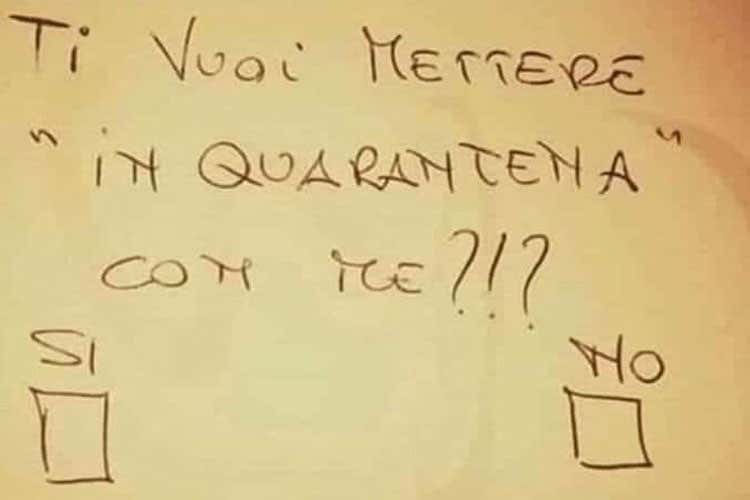 Ti VUOi METTERE
"iN QUARANTENA"
CON ME?!?
SI NO